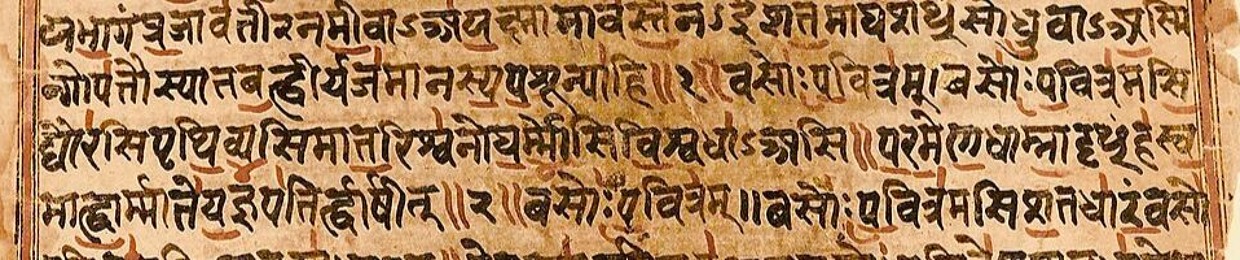 घ्यभागंप्रजावतीरनमीवाऽअयक्ष्मामावस्तेनऽईशतमाघशꣳसोध्रुवाऽअस्मि
न्गोपतौस्यातबह्वीर्यजमानस्यपशून्पाहि॥१॥वसोःपवित्रम्।वसोःपवित्रमसि
द्यौरसिपृथिव्यसिमातरिश्वनोघर्मोसिविश्वधाऽअसि॥परमेणधाम्नादृꣳहस्व
माह्वार्मातेयज्ञपतिर्ह्वार्षीत्॥२॥वसोःपवित्रम्॥वसोःपवित्रमसिशतधारंवसो